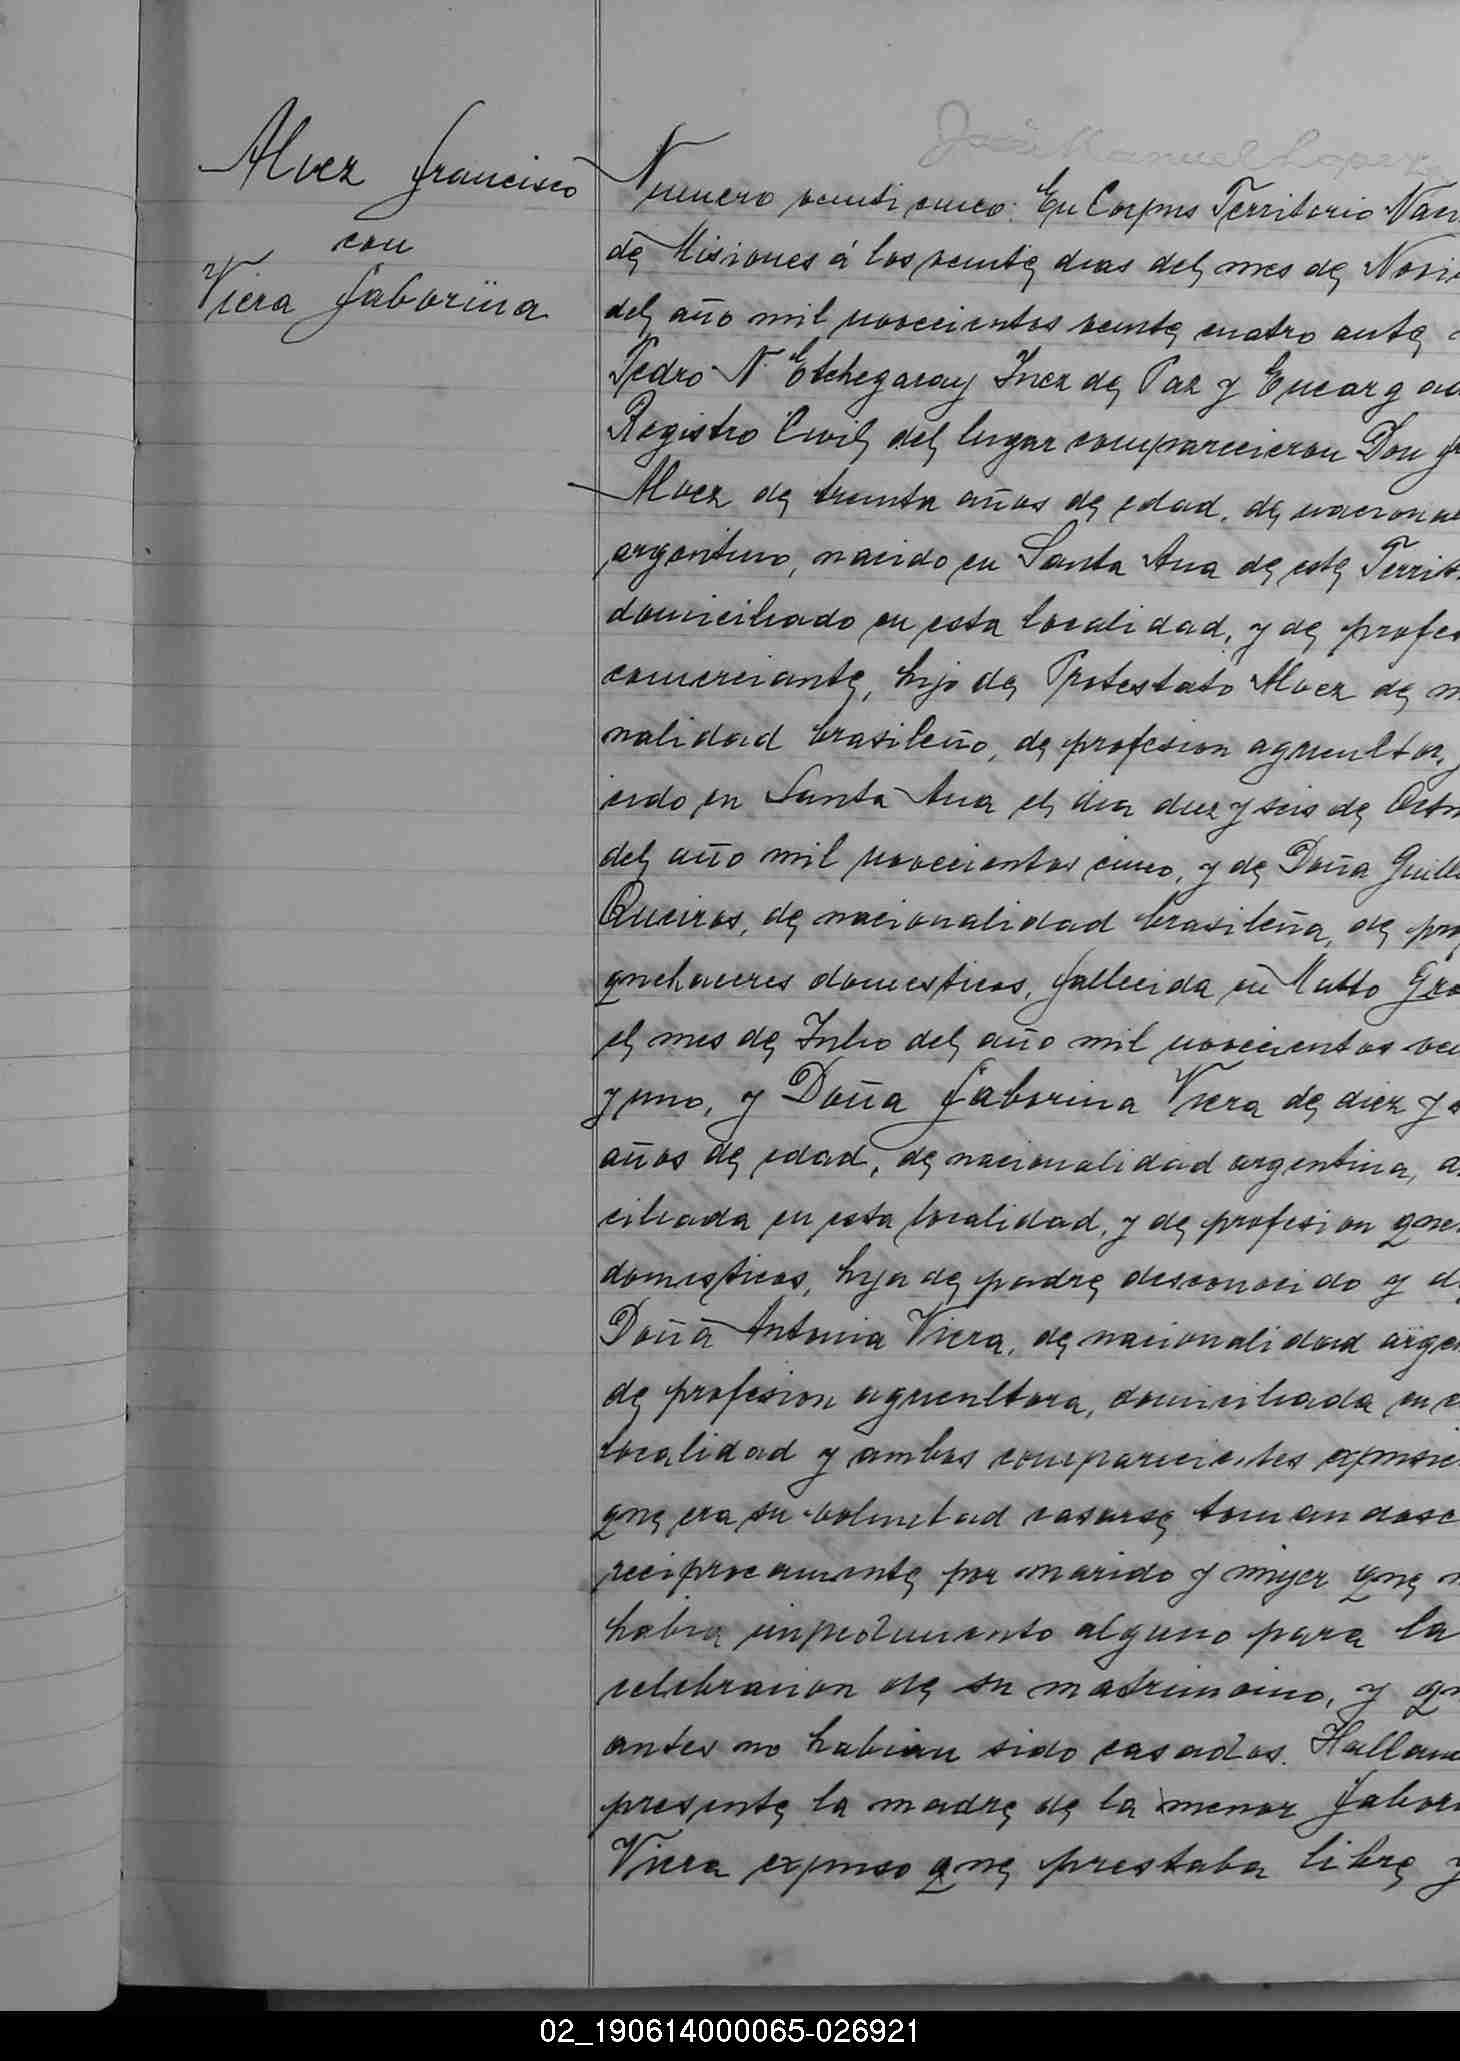 José Manuel Lopez
Alvez Francisco
con
Viera Faborina
Numero veinti cinco: En Corpus Territorio Naci
de Misiones á los veinte dias del mes de Novie
del año mil novecientos veinte cuatro ante
Pedro N. Etchegaray Juez de Paz y Encargad
Registro Civil del lugar comparecieron Don Fr
Alvez de treinta años de edad, de naciona
argentino, nacido en Santa Ana de este Territo
domiciliado en esta localidad, y de profes
comerciante, hijo de Protestato Alvez de n
nalidad brasileño, de profesion agricultor,
cido en Santa Ana el dia diez y seis de Octu
del año mil novecientos cinco, y de Doña Guille
Queiros, de nacionalidad brasileña, de prof
quehaceres domesticos, fallecida en Matto Gro
el mes de Julio del año mil novecientos vei
y uno, y Doña Faborina Viera de diez y s
años de edad, de nacionalidad argentina, d
ciliada en esta localidad, y de profesion que
domesticos, hija de padre desconocido y d
Doña Antonia Viera, de nacionalidad argen
de profesion agricultora, domiciliada en e
localidad y ambos comparecientes expusie
que era su voluntad casarse tomandose
reciprocamente por marido y mujer que n
habia impedimento alguno para la
celebracion de su matrimonio, y qu
antes no habian sido casados. Hallan
presente la madre de la menor Fabori
Viera expuso que prestaba libre y
02_190614000065-026921